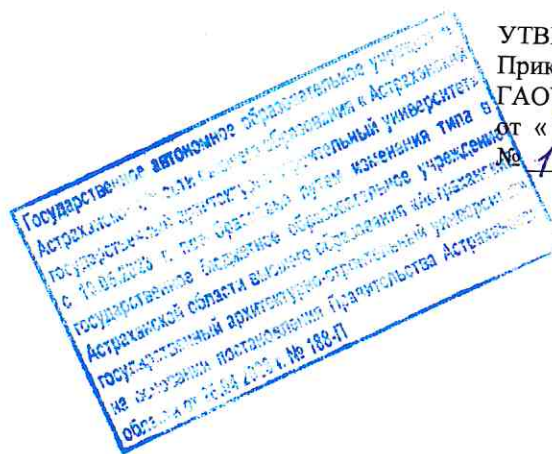 УТВ
Прик
ГАО
от «
№ 1
Государственное автономное образовательное учреждение
Астраханской области высшего образования «Астраханский
государственный архитектурно-строительный университет»
с г. преобразовано путем изменения типа в
государственное бюджетное образовательное учреждение
Астраханской области высшего образования «Астраханский
государственный архитектурно-строительный университет»
на основании постановления Правительства Астраханской
области от г. № 188-П